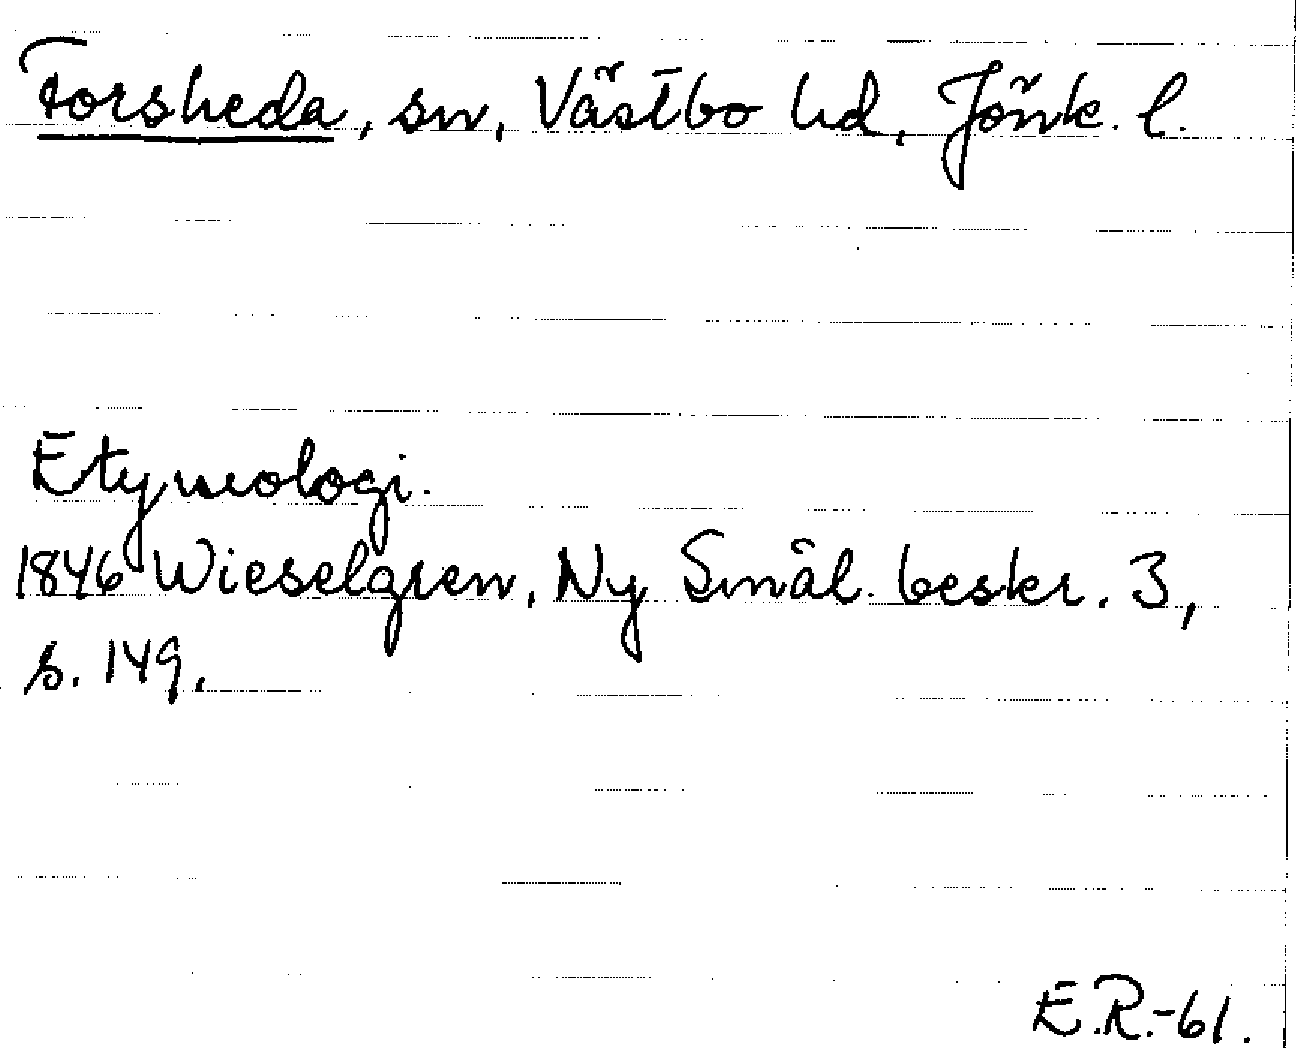 Forsheda, sn, Västbo hd, Jönk. l.
Etymologi.
1846 Wieselgren, Ny Smål. beskr. 3,
s. 149.
E.R.-61.